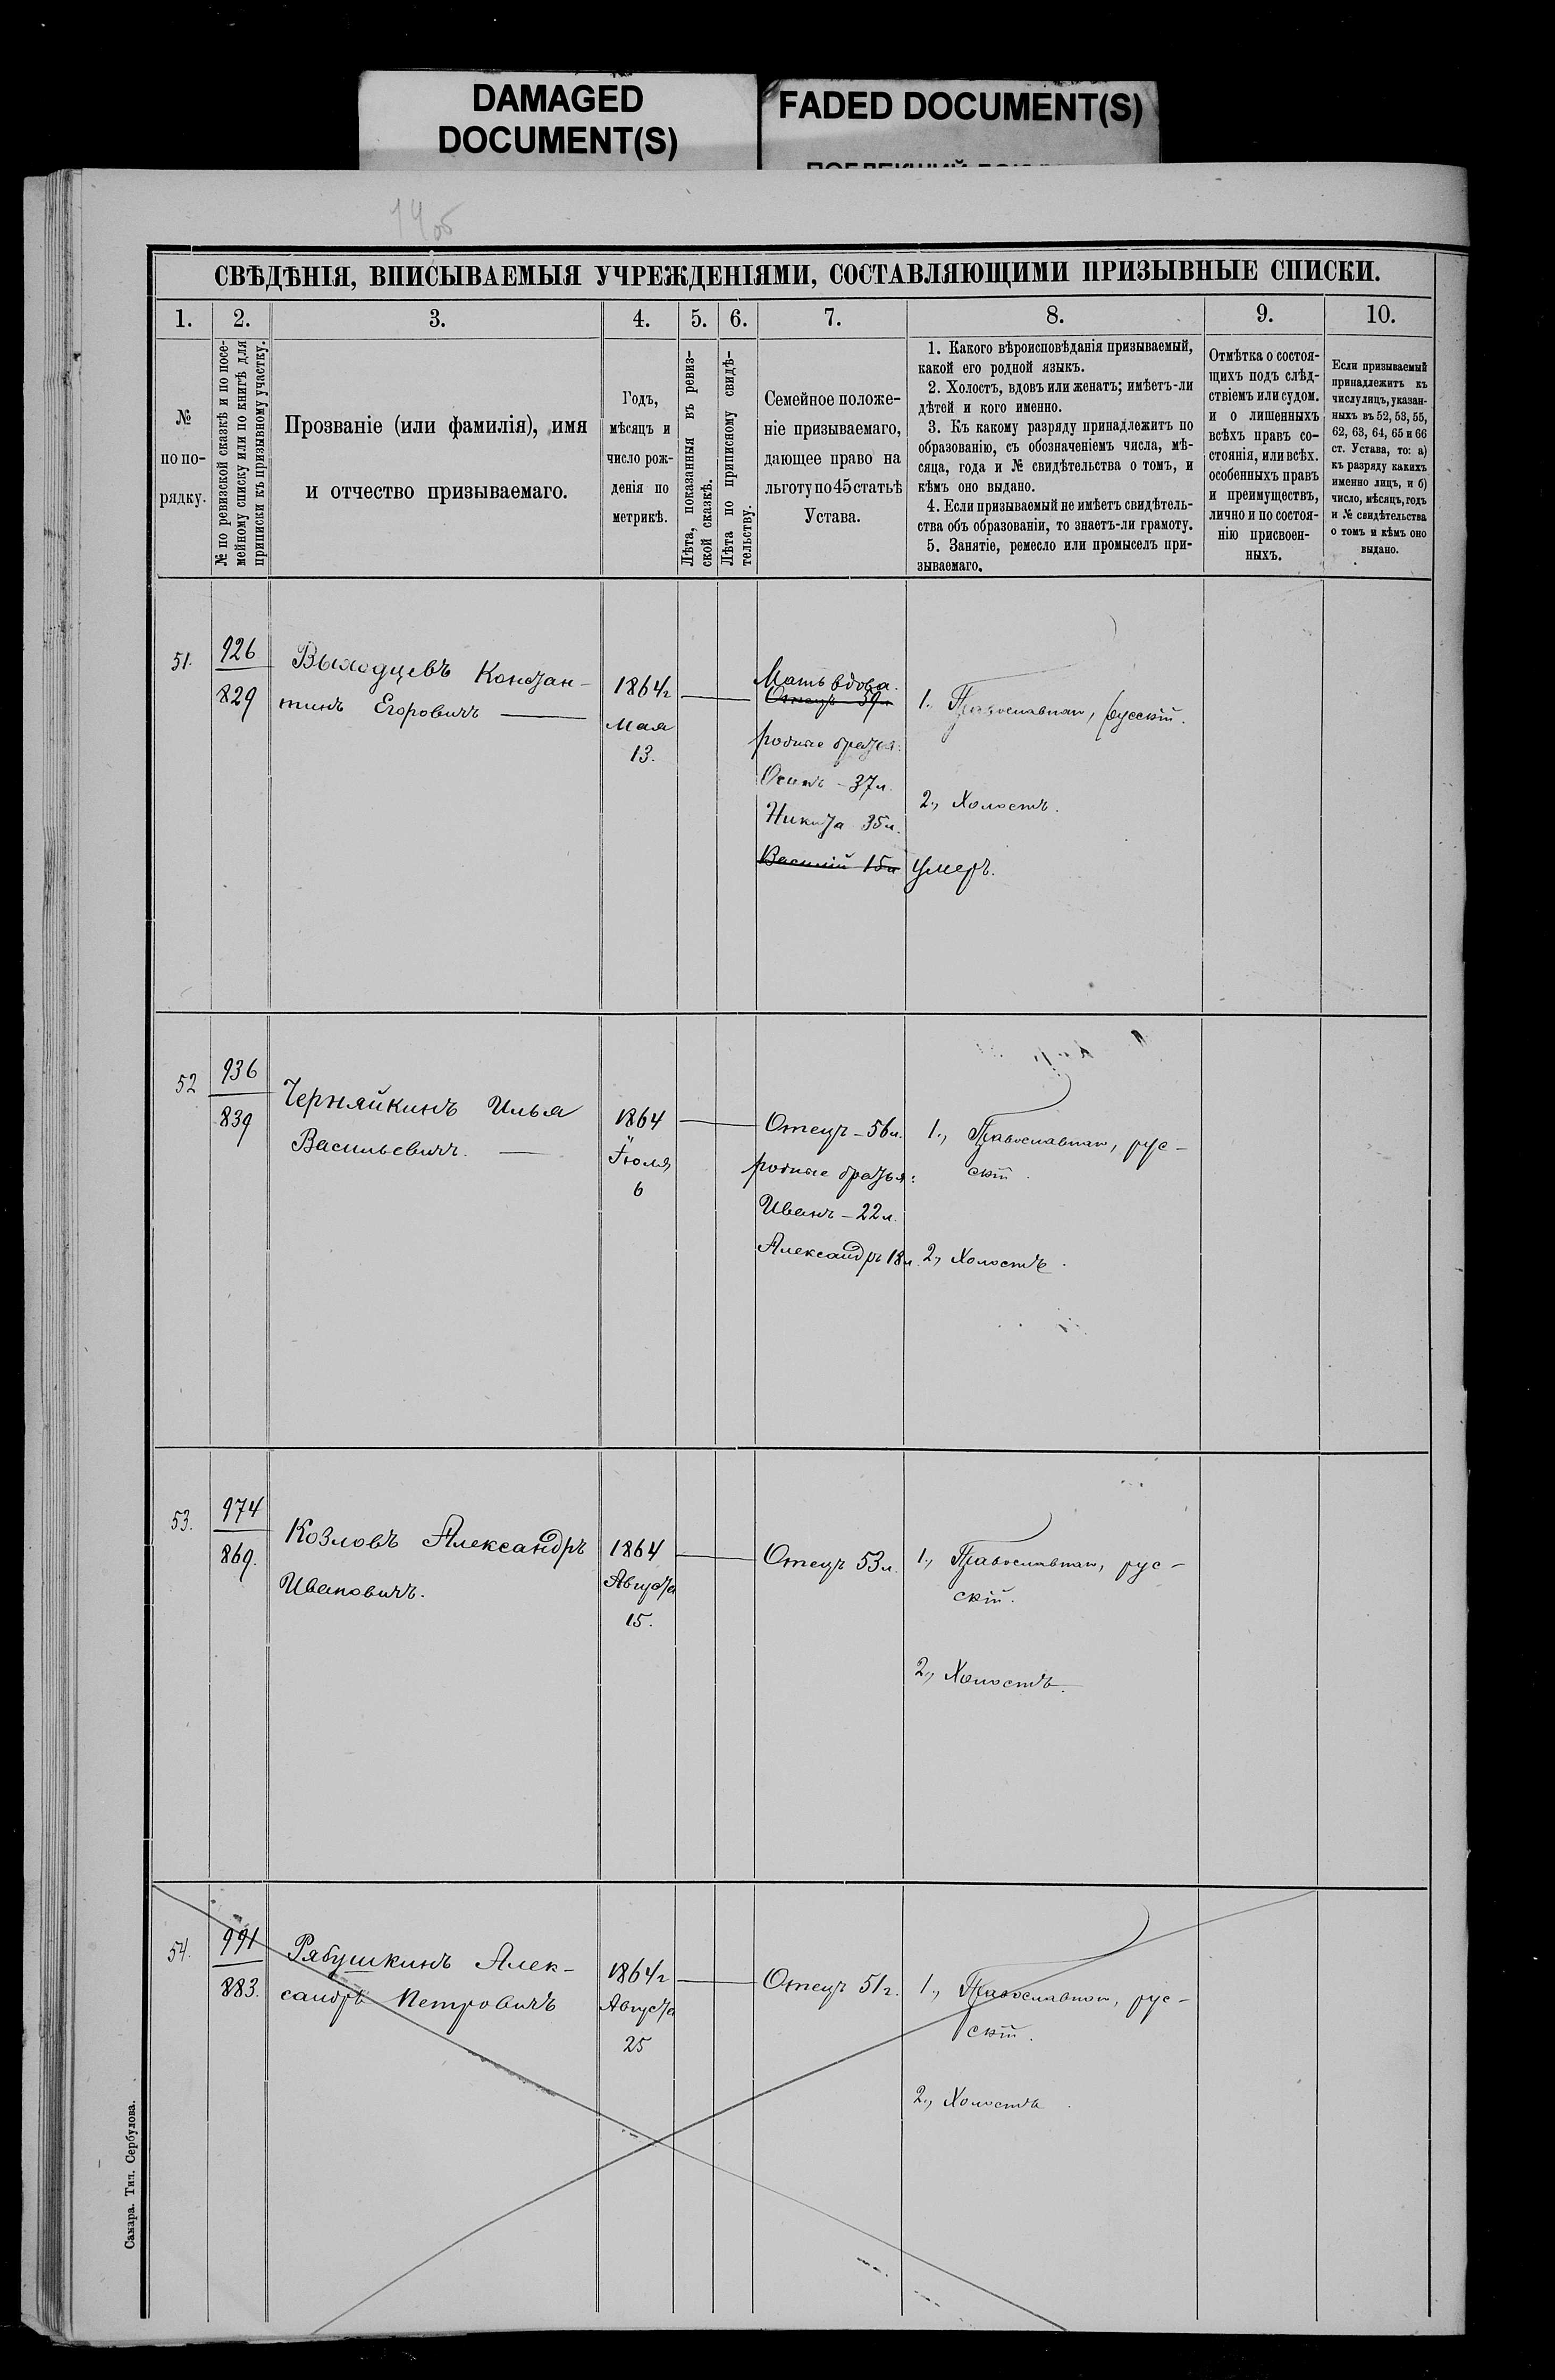 DAMAGED
DOCUMENT(S)
FADED DOCUMENT(S)
14 об
СВѢДѢНІЯ, ВПИСЫВАЕМЫЯ УЧРЕЖДЕНІЯМИ, СОСТАВЛЯЮЩИМИ ПРИЗЫВНЫЕ СПИСКИ.
1.
2.
3.
4.
5.
6.
7.
8.
9.
10.
№
по по-
рядку.
№ по ревизской сказкѣ и по посе-
мейному списку или по книгѣ для
приписки къ призывному участку.
Прозваніе (или фамилія), имя
и отчество призываемаго.
Годъ,
мѣсяцъ и
число рож-
денія по
метрикѣ.
Лѣта, показанныя въ ревиз-
ской сказкѣ.
Лѣта по приписному свидѣ-
тельству.
Семейное положе-
ніе призываемаго,
дающее право на
льготу по 45 статьѣ
Устава.
1. Какого вѣроисповѣданія призываемый,
какой его родной языкъ.
2. Холостъ, вдовъ или женатъ; имѣетъ-ли
дѣтей и кого именно.
3. Къ какому разряду принадлежитъ по
образованію, съ обозначеніемъ числа, мѣ-
сяца, года и № свидѣтельства о томъ, и
кѣмъ оно выдано.
4. Если призываемый не имѣетъ свидѣтель-
ства объ образованіи, то знаетъ-ли грамоту.
5. Занятіе, ремесло или промыселъ при-
зываемаго.
Отмѣтка о состоя-
щихъ подъ слѣд-
ствіемъ или судом.
и о лишенныхъ
всѣхъ правъ со-
стоянія, или всѣх.
особенныхъ правъ
и преимуществъ,
лично и по состоя-
нію присвоен-
ныхъ.
Если призываемый
принадлежитъ къ
числу лицъ, указан-
ныхъ въ 52, 53, 55,
62, 63, 64, 65 и 66
ст. Устава, то: а)
къ разряду какихъ
именно лицъ, и б)
число, мѣсяцъ, годъ
и № свидѣтельства
о томъ и кѣмъ оно
выдано.
51.
926
829
Выходцевъ Констан-
тинъ Егоровичъ
1864 г
Мая
13.
Мать вдова.
Отецъ 59 л
родные братья:
Осипъ - 37 л.
Никита 35 л.
Василій 15 л
1., Православнаго, русскій.
2., Холостъ.
умеръ.
52
936
839
Черняйкинъ Илья
Васильевичъ.
1864
Іюля
6
Отецъ - 56 л.
родные братья:
Иванъ - 22 л.
Александръ 18 л.
1., Православнаго, рус-
скій
2., Холостъ.
53.
974
869.
Козловъ Александръ
Ивановичъ.
1864
Августа
15.
Отецъ 53 л.
1., Православнаго, рус-
скій.
2., Холостъ.
54.
991
883.
Рябушкинъ Алек-
сандръ Петровичъ
1864 г
Августа
25
Отецъ 51 г.
1., Православнаго, рус-
скій.
2., Холостъ
Самара. Тип. Сербулова.